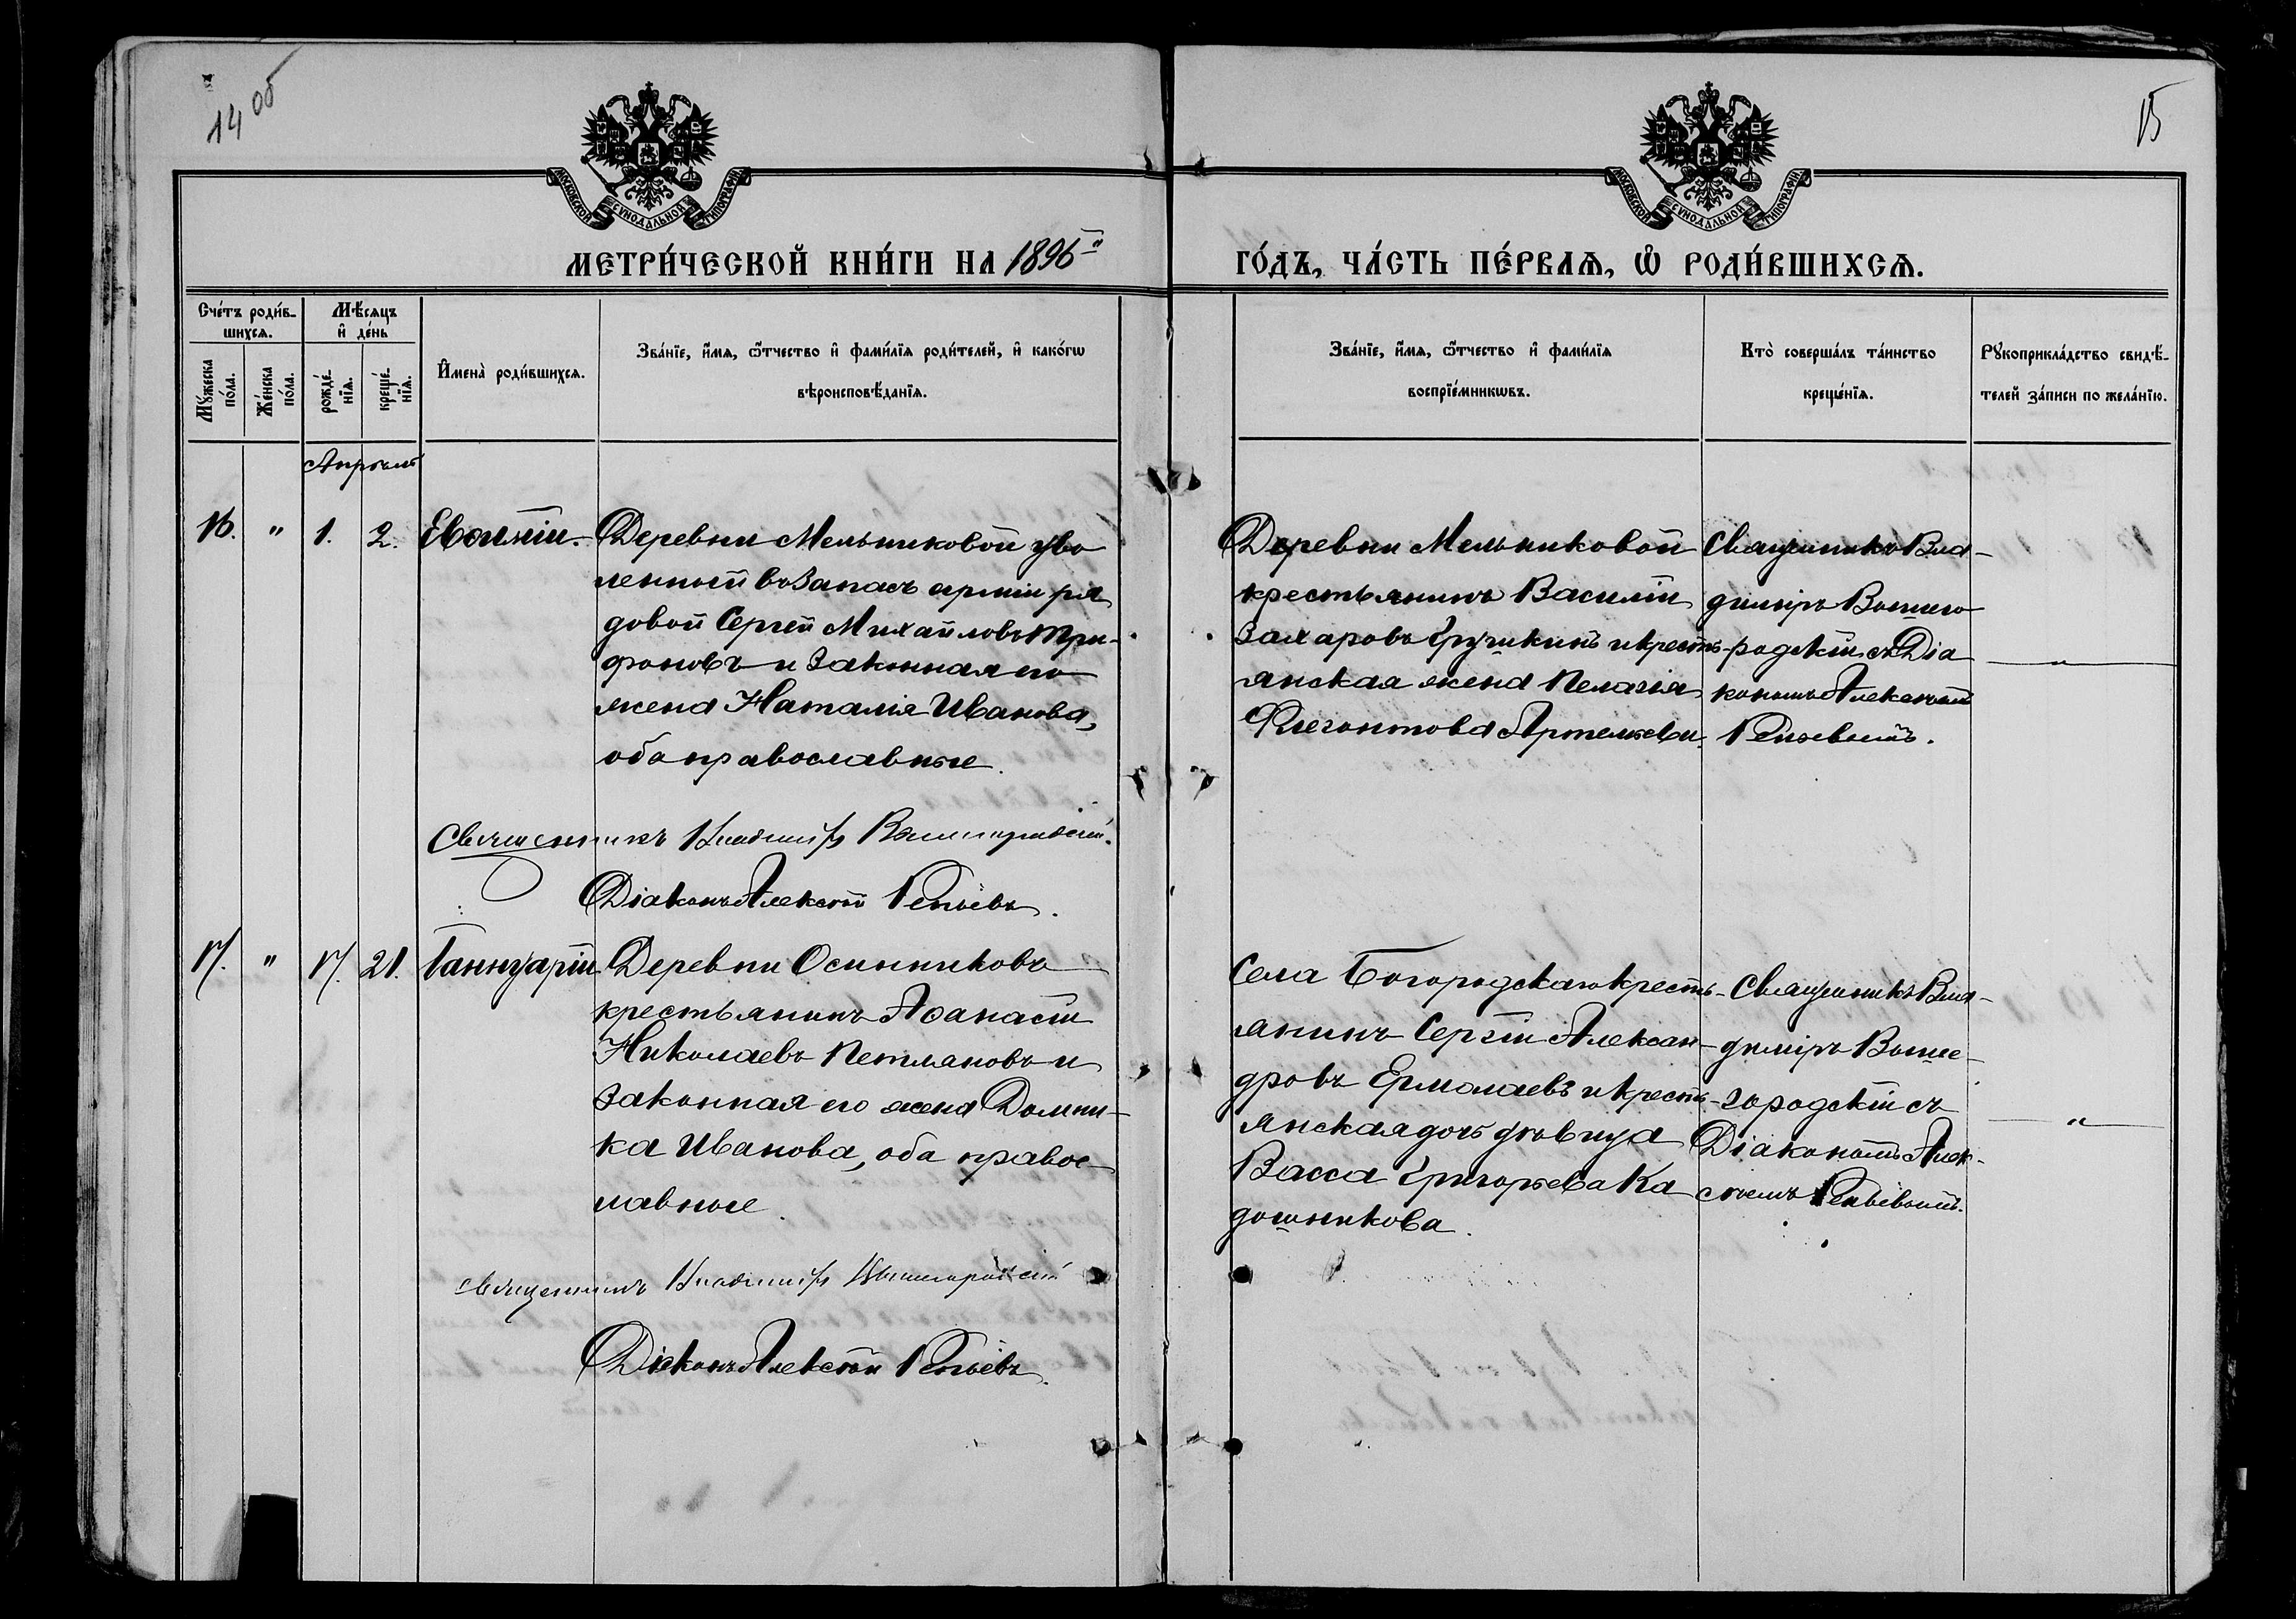 14 об
15
МОСКОВСКОЙ СѴНОДАЛЬНОЙ ТИПОГРАФІИ
МОСКОВСКОЙ СѴНОДАЛЬНОЙ ТИПОГРАФІИ
МЕТРИ́ЧЕСКОЙ КНИ́ГИ НА 1896й
ГО́ДЪ, ЧА́СТЬ ПЕ́РВАѦ, Ѽ РОДИ́ВШИХСѦ.
Сче́тъ роди́в-
шихсѧ.
Мꙋ́жеска
по́ла.
Же́нска
по́ла.
Мѣ́сѧцъ
и҆ де́нь
рожде́-
нїѧ.
креще́-
нїѧ.
И҆мена̀ роди́вшихсѧ.
Зва́нїе, и҆́мѧ, ѻ҆́тчество и҆ фами́лїѧ роди́телей, и҆ како́гѡ
вѣроисповѣ́данїѧ.
Зва́нїе, и҆́мѧ, ѻ҆́тчество и҆ фами́лїѧ
воспрїе́мникѡвъ.
Кто̀ соверша́лъ та́инство
креще́нїѧ.
Рꙋкоприкла́дство свидѣ́-
телей за́писи по жела́нїю.
Апрѣль
16.
"
1.
2.
Евѳимій.
Деревни Мельниковой уво
ленный въ запасъ арміи ря
довой Сергей Михайловъ Три-
фоновъ и законная его
жена Наталія Иванова,
оба православные.
Деревни Мельниковой
крестьянинъ Василій
Захаровъ Грушкинъ и кресть-
янская жена Пелагія
Флегонтова Артемьева.
Священникъ Вла-
диміръ Вышего
родскій съ Діа
кономъ Алексѣемъ
Репьевымъ.
"
Священникъ Владиміръ Вышегородскій.
Діаконъ Алексѣй Репьевъ.
17.
"
17.
21.
Іаннуарій
Деревни Осинниковъ
крестьянинъ Аѳанасій
Николаевъ Петляновъ и
законная его жена Домни-
ка Иванова, оба правос-
лавные.
Села Богородскаго кресть-
янинъ Сергій Алексан-
дровъ Ермолаевъ и кресть-
янская дочь дѣвица
Васса Григорьева Ка
дошникова.
Священникъ Вла-
диміръ Выше-
городскій съ
Діакономъ Алек-
сѣемъ Репьевымъ.
"
Священникъ Владиміръ Вышегородскій
Діаконъ Алексѣй Репьевъ.